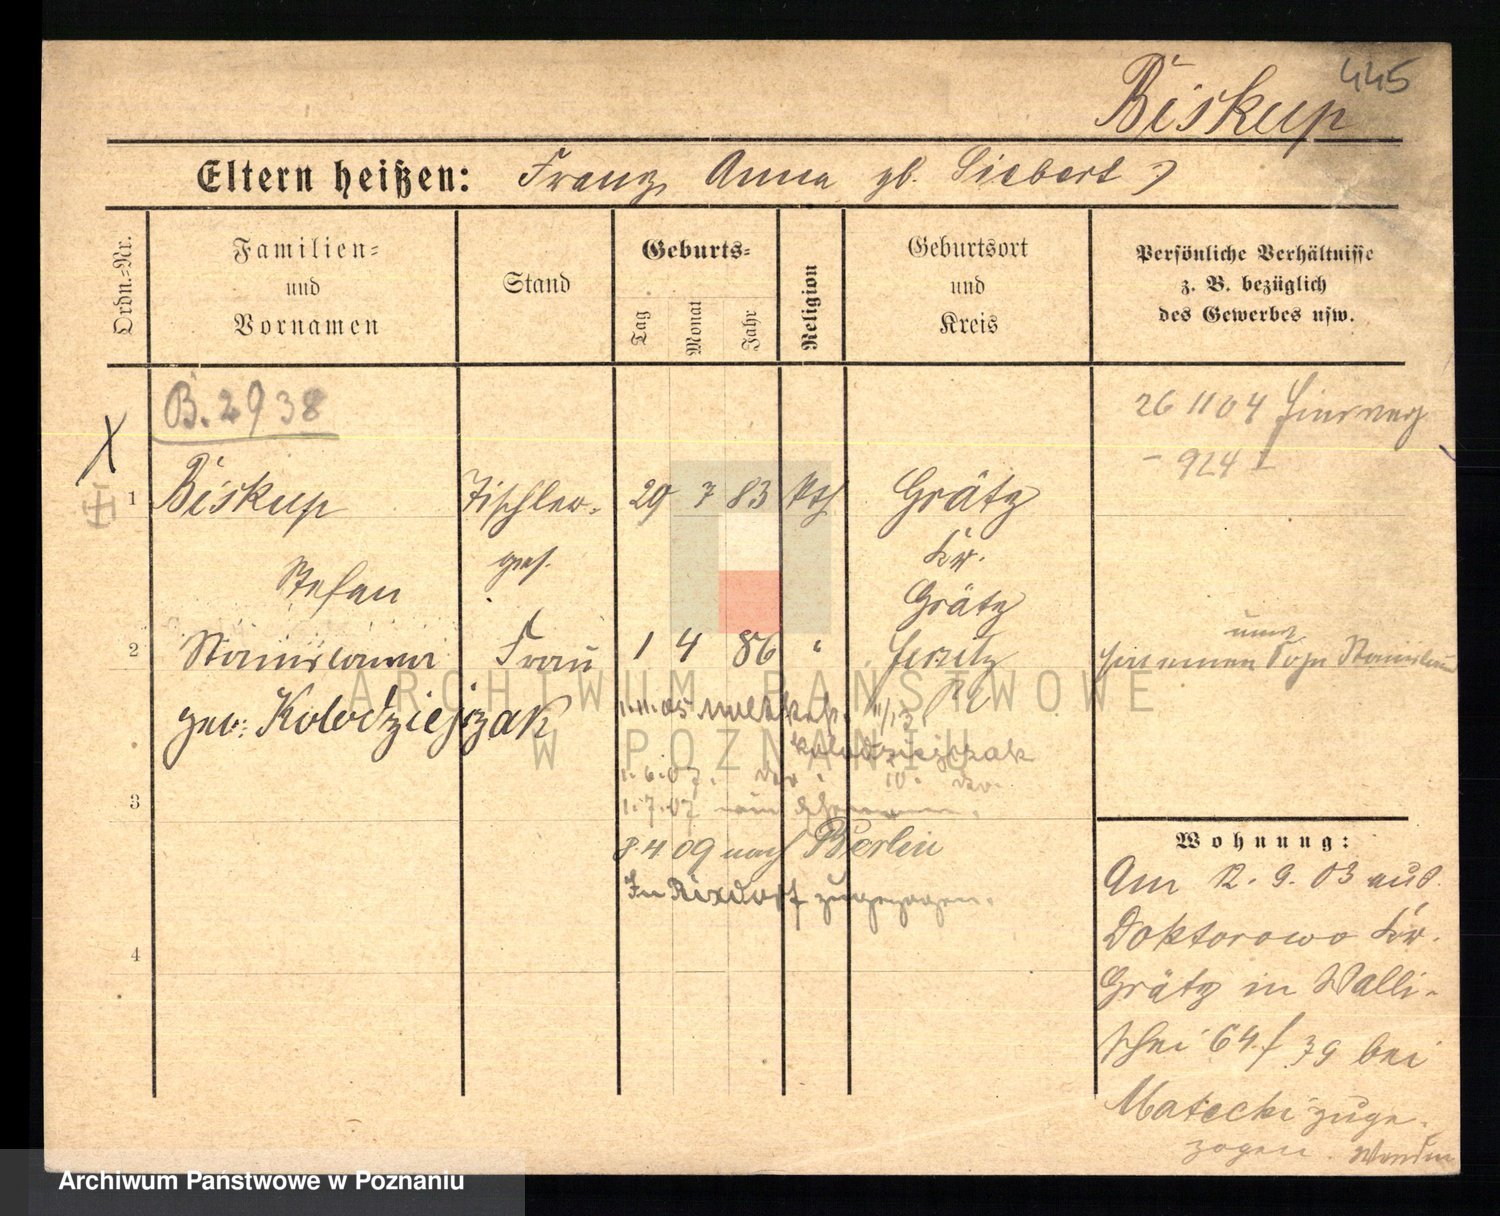 445
Biskup
Eltern heißen: Franz Anna gb. Siebert
Ordn.-Nr.
Familien-
und
Vornamen
Stand
Geburts-
Tag
Monat
Jahr
Religion
Geburtsort
und
Kreis
Persönliche Verhältnisse
z. B. bezüglich
des Gewerbes usw.
B. 2938
26 11 04
- 924 I
1 Biskup Tischler- 29 7 83 kth Grätz
Stefan ges. Kr.
Grätz
2 Stanislawa Frau 1 4 86 " Jersitz
Sohn Stanislaus
geb. Kolodziejczak
1.11.05
Kolodziejczak
1.6.07.
3
1.7.07
8.4.09 nach Berlin
In Rixdorf zugezogen.
4
Wohnung:
Am 12. 9. 03 aus
Doktorowo Kr.
Grätz in Walli-
schei 64/ 39 bei
Matecki zuge-
zogen.
ARCHIWUM PAŃSTWOWE
W POZNANIU
Archiwum Państwowe w Poznaniu